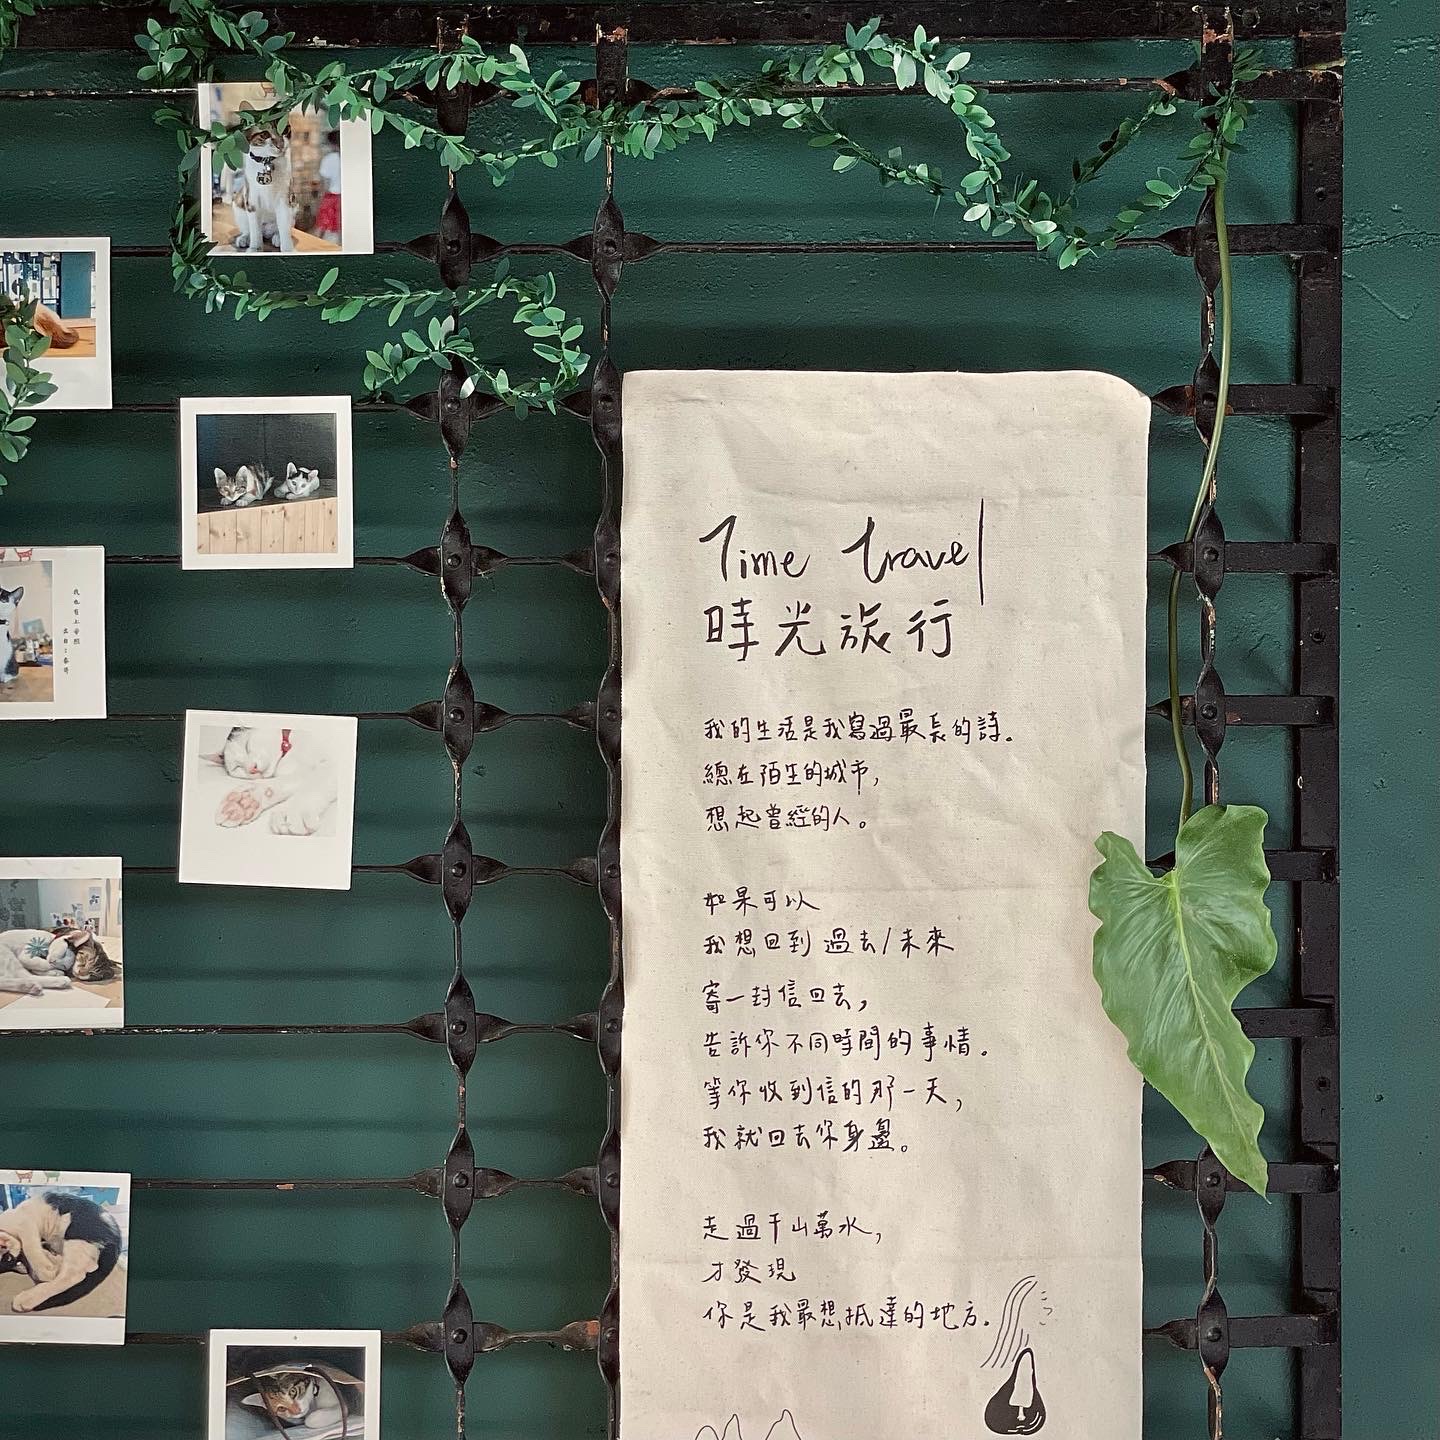 Time travel
時光旅行
我的生活是我寫過最長的詩。
總在陌生的城市,
想起曾經的人。
如果可以
我想回到過去/未來
寄一封信回去,
告訴你不同時間的事情。
等你收到信的那一天,
我就回去你身邊。
走過千山萬水,
才發現
你是我最想抵達的地方.
我也有上帝照